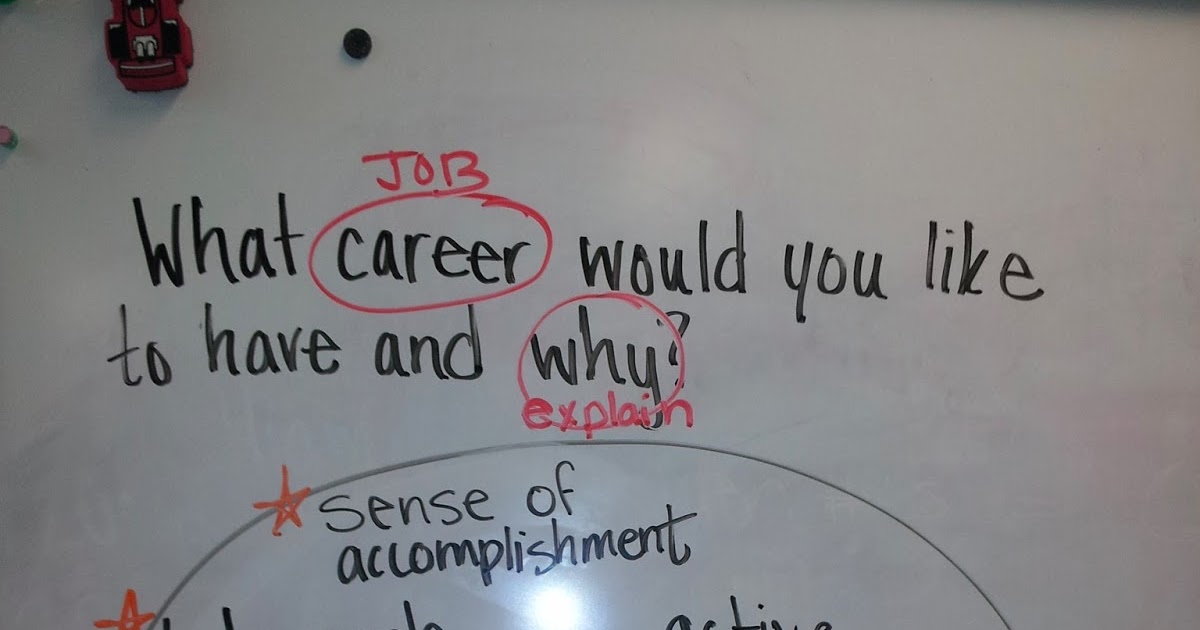 JOB
What career would you like
to have and why?
explain
sense of
accomplishment
active